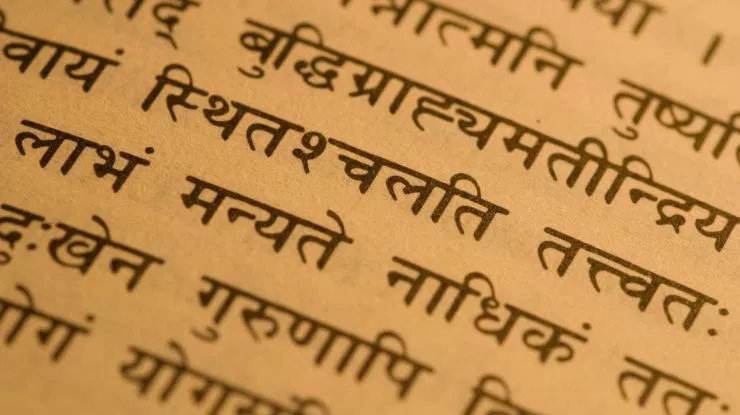 न्नात्मनि तुष्यति
तद् बुद्धिग्राह्यमतीन्द्रिय
वायं स्थितश्चलति तत्त्वतः
लाभं मन्यते नाधिकं ततः
दुःखेन गुरुणापि वि
योगं योगस